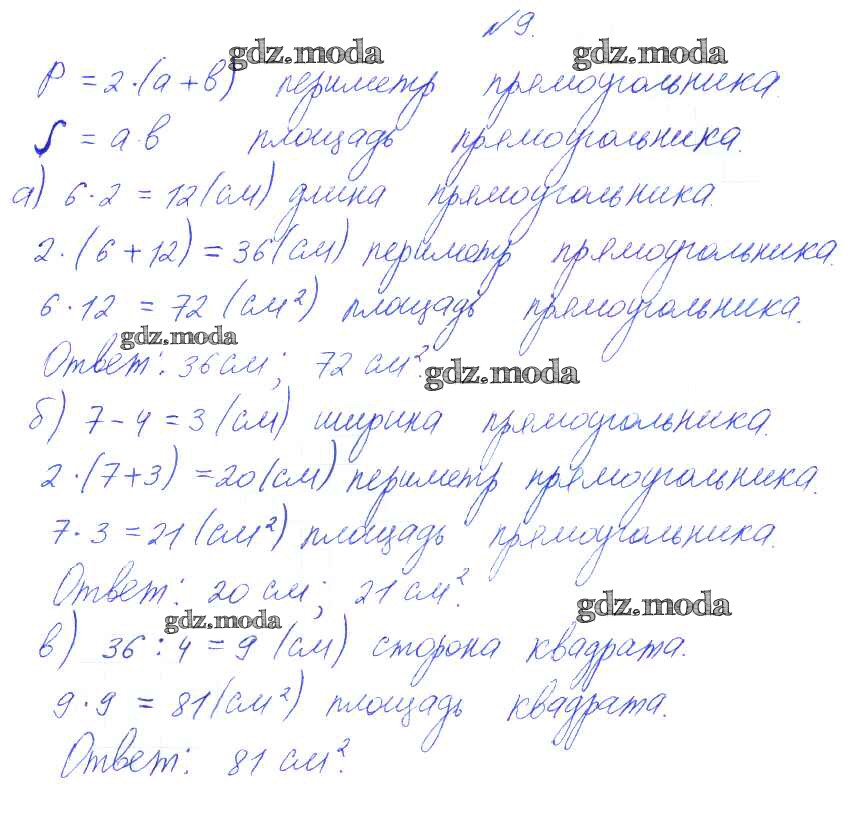 №9.
gdz.moda gdz.moda
P = 2·(a+b) периметр прямоугольника.
S = a·b площадь прямоугольника.
а) 6·2 = 12 (см) длина прямоугольника.
2·(6+12) = 36 (см) периметр прямоугольника.
6·12 = 72 (см²) площадь прямоугольника.
gdz.moda
Ответ: 36 см; 72 см².
gdz.moda
б) 7-4 = 3 (см) ширина прямоугольника.
2·(7+3) = 20 (см) периметр прямоугольника.
7·3 = 21 (см²) площадь прямоугольника.
Ответ: 20 см; 21 см².
gdz.moda gdz.moda
в) 36:4 = 9 (см) сторона квадрата.
9·9 = 81 (см²) площадь квадрата.
Ответ: 81 см².